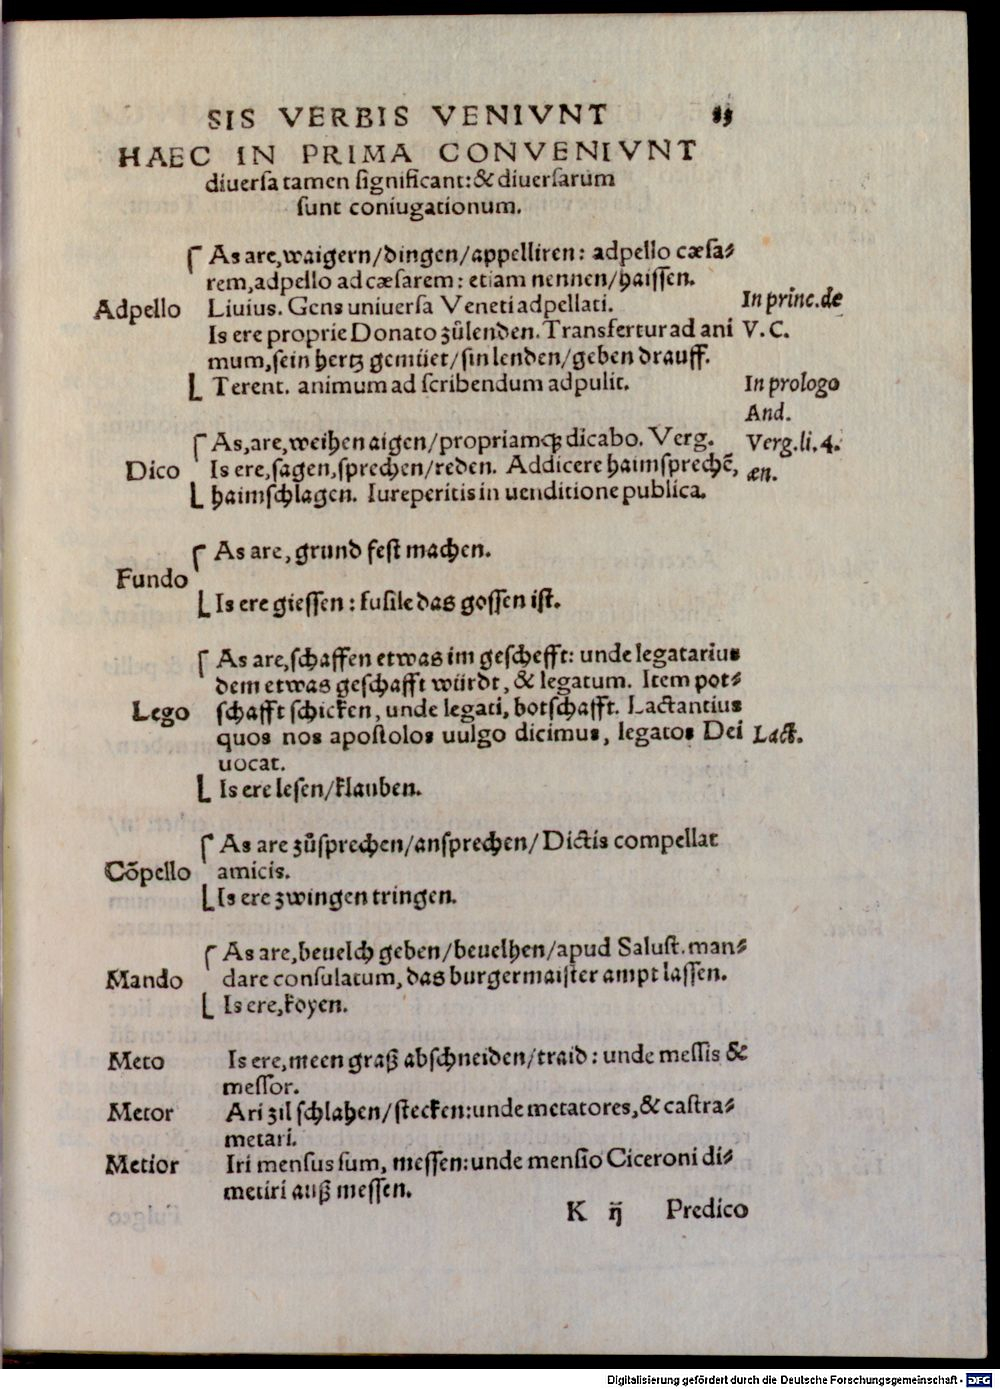 SIS VERBIS VENIVNT
HAEC IN PRIMA CONVENIVNT
diuersa tamen significant:& diuersarum
sunt coniugationum.
As are,waigern/dingen/appelliren: adpello cæsa⸗
rem,adpello ad cæsarem: etiam nennen/haissen.
Adpello Liuius. Gens uniuersa Veneti adpellati. In princ. de
Is ere proprie Donato zůlenden. Transfertur ad ani V. C.
mum,sein hertz gemüet/sin lenden/geben drauff.
Terent. animum ad scribendum adpulit. In prologo
And.
As,are,weihen aigen/propriamq; dicabo. Verg. Verg.li.4.
Dico Is ere,sagen,sprechen/reden. Addicere haimsprechē, æn.
haimschlagen. Iureperitis in uenditione publica.
As are, grund fest machen.
Fundo
Is ere giessen: fusile das gossen ist.
As are,schaffen etwas im geschefft: unde legatarius
dem etwas geschafft würdt, & legatum. Item pot⸗
Lego schafft schicken, unde legati, botschafft. Lactantius
quos nos apostolos uulgo dicimus, legatos Dei Lact.
uocat.
Is ere lesen/klauben.
As are zůsprechen/ansprechen/Dictis compellat
Cōpello amicis.
Is ere zwingen tringen.
As are,beuelch geben/beuelhen/apud Salust. man⸗
Mando dare consulatum, das burgermaister ampt lassen.
Is ere,koyen.
Meto Is ere,meen graß abschneiden/traid: unde messis &
messor.
Metor Ari zil schlahen/stecken:unde metatores,& castra⸗
metari.
Metior Iri mensus sum, messen:unde mensio Ciceroni di⸗
metiri auß messen.
K ij Predico
Digitalisierung gefördert durch die Deutsche Forschungsgemeinschaft - DFG